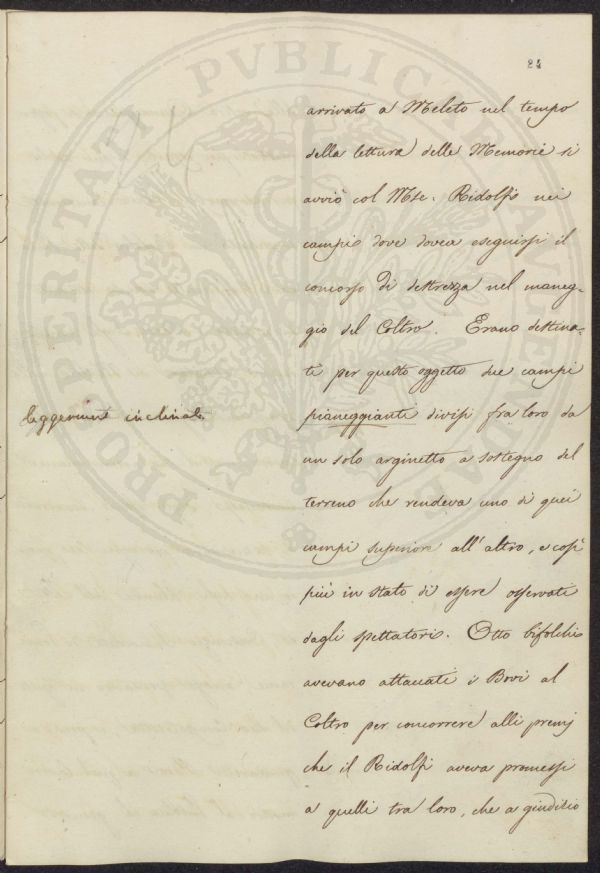 24
arrivato a Meleto nel tempo
della lettura delle Memorie si
avviò col Mse. Ridolfi nei
campi dove dovea eseguirsi il
concorso di destrezza nel maneg-
gio del Coltro. Erano destina-
ti per questo oggetto due campi
leggermente inclinati
pianeggianti divisi fra loro da
un solo arginetto a sostegno del
terreno che rendeva uno di quei
campi superiore all'altro, e così
più in stato di essere osservati
dagli spettatori. Otto bifolchi
avevano attaccati i Bovi al
Coltro per concorrere alli premj
che il Ridolfi aveva promessi
a quelli tra loro, che a giudizio
PROSPERITATI PVBLICAE AVGENDAE